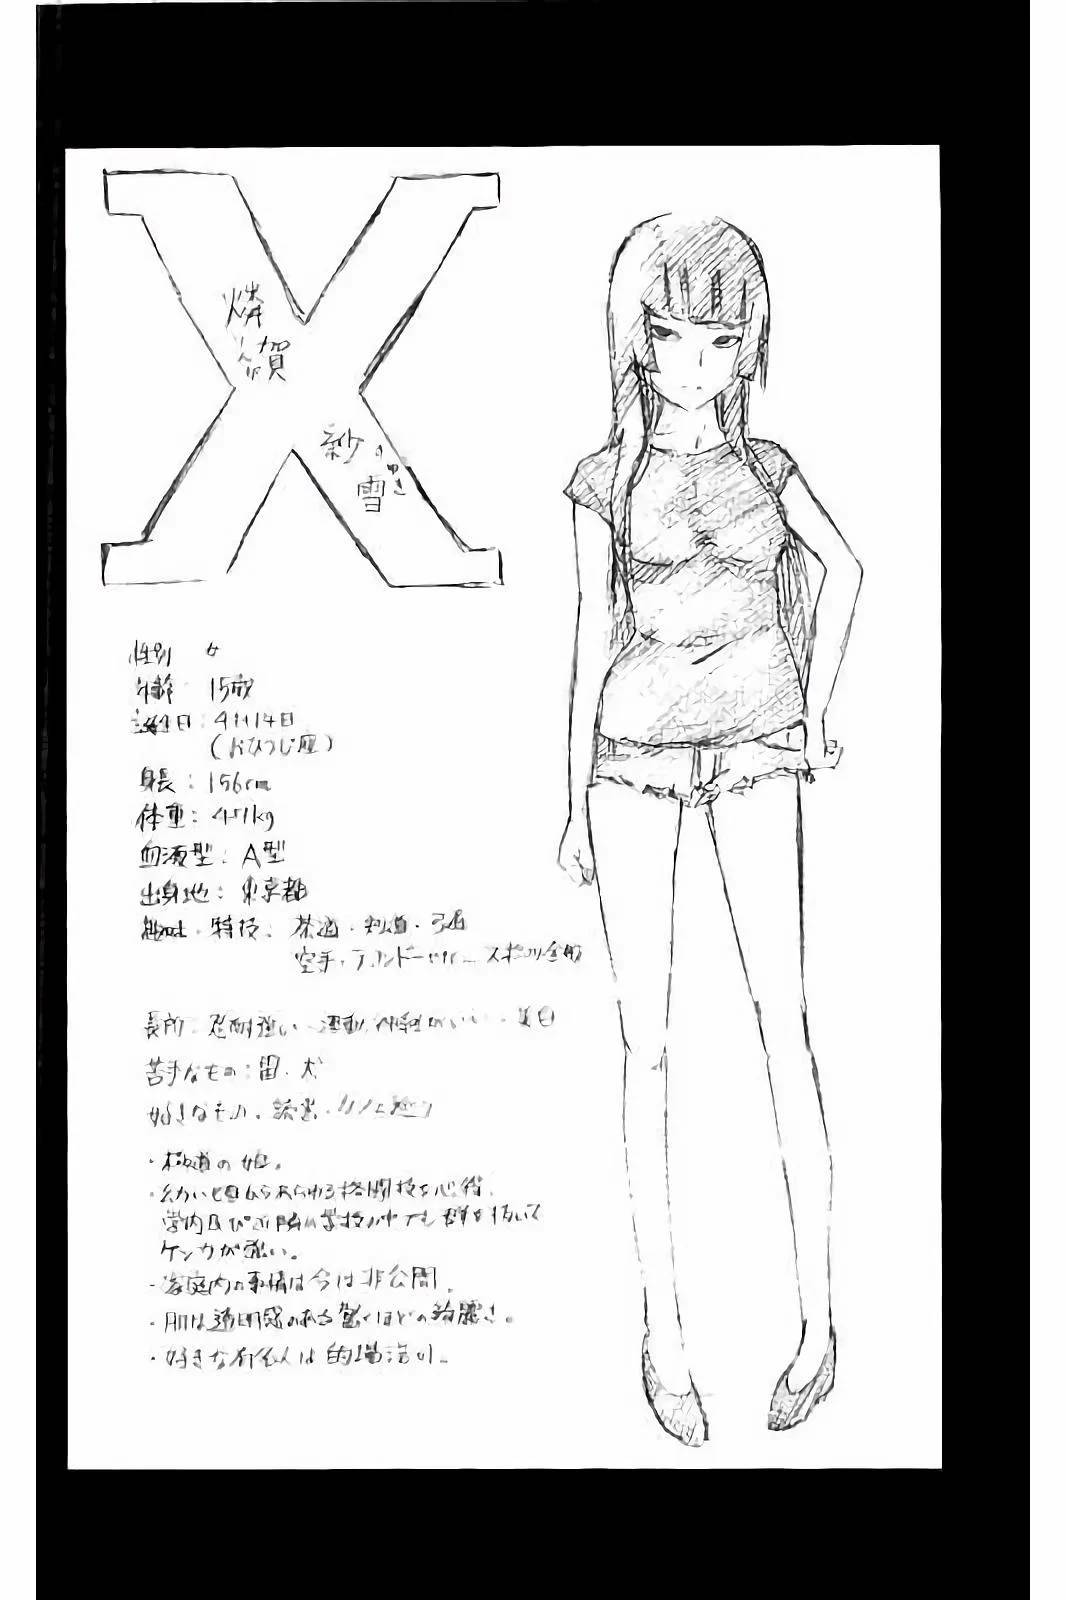 X
燐賀
紗の雪
ゆき
性別 女
年齢 15歳
誕生日：4月14日
（おひつじ座）
身長：156cm
体重：45kg
血液型：A型
出身地：東京都
趣味・特技：茶道・剣道・弓道
空手・テコンドー
長所：忍耐強い・運動神経がいい・美白
苦手なもの：雷・犬
好きなもの・読書・カフェ巡り
・極道の娘。
・幼い頃からあらゆる格闘技を心得、
ケンカが強い。
・家庭内の事情は今は非公開。
・肌は透明感のある驚くほどの綺麗さ。
・好きな有名人は的場浩司。